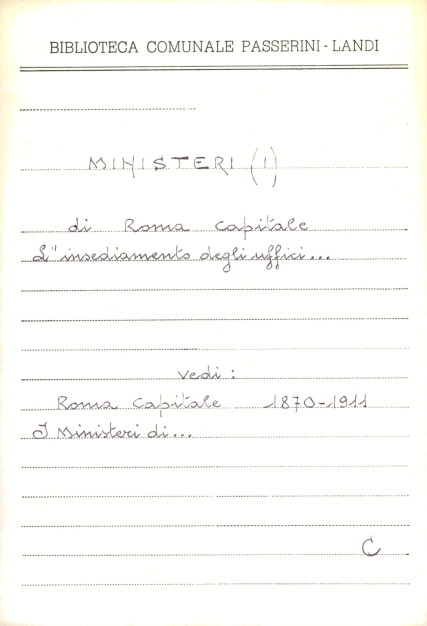 BIBLIOTECA COMUNALE PASSERINI-LANDI
MINISTERI (I)
di Roma capitale
L'insediamento degli uffici...
vedi:
Roma Capitale 1870-1911
I Ministeri di...
C